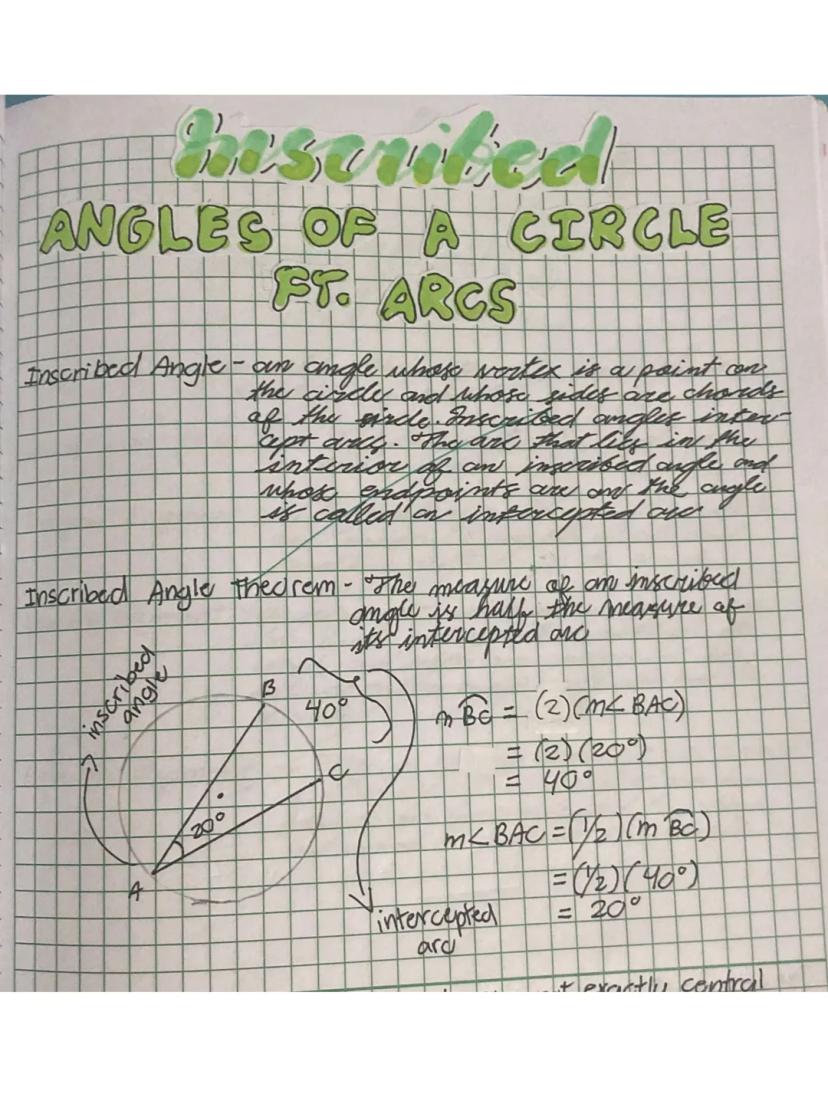 Inscribed
ANGLES OF A CIRCLE
FT. ARCS
Inscribed Angle - an angle whose vertex is a point on
the circle and whose sides are chords
of the circle. Inscribed angles inter-
cept arcs. The arc that lies in the
interior of an inscribed angle and
whose endpoints are on the angle
is called an intercepted arc
Inscribed Angle theorem - The measure of an inscribed
angle is half the measure of
its intercepted arc
inscribed
angle
B
40°
C
20°
A
intercepted
arc
m BC = (2)(m∠BAC)
= (2)(20°)
= 40°
m∠BAC = (1/2)(m BC)
= (1/2)(40°)
= 20°
exactly central